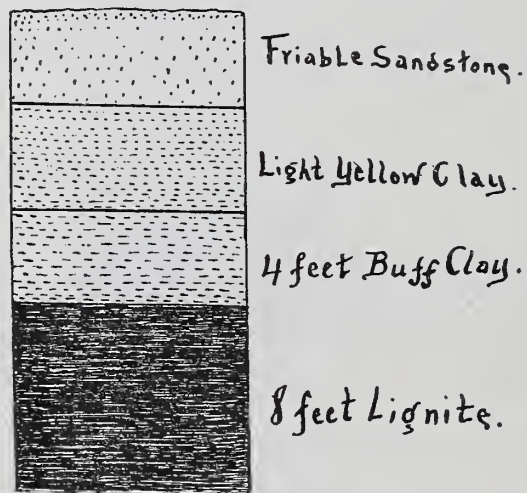 Friable Sandstone.
Light Yellow Clay.
4 feet Buff Clay.
8 feet Lignite.